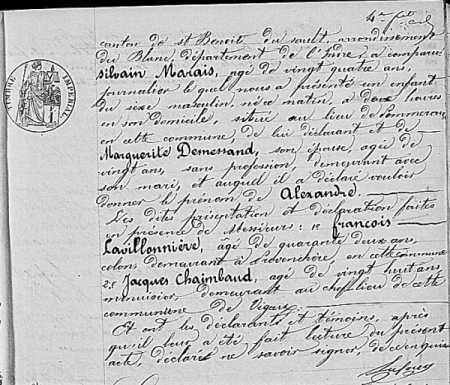 canton de st Benoît du sault, arrondissement
du Blanc, département de l'Indre, a comparu
silvain Marais, agé de vingt quatre ans,
journalier le quel nous a présenté un enfant
du sexe masculin, né ce matin, à deux heures
en son domicile, situé au lieu de
en cette commune, de lui déclarant et de
Marguerite Demessand, son épouse, agée de
vingt ans, sans profession demeurant avec
son mari, et auquel il a déclaré vouloir
donner le prénom de Alexandre.
Les dits présentation et déclaration faites
en présence de Messieurs: 1e francois
Lavillonnière, agé de quarante deux ans,
colons demeurant à en cette commune
2e Jacques Chaimbaud, agé de vingt huit ans,
menuisier, demeurant au chef lieu de cette
commune de Vigoux
Et ont les déclarants et témoins, après
qu'il leur a été fait lecture du présent
acte, déclaré ne savoir signer, de ce enquis
TIMBRE IMPERIAL